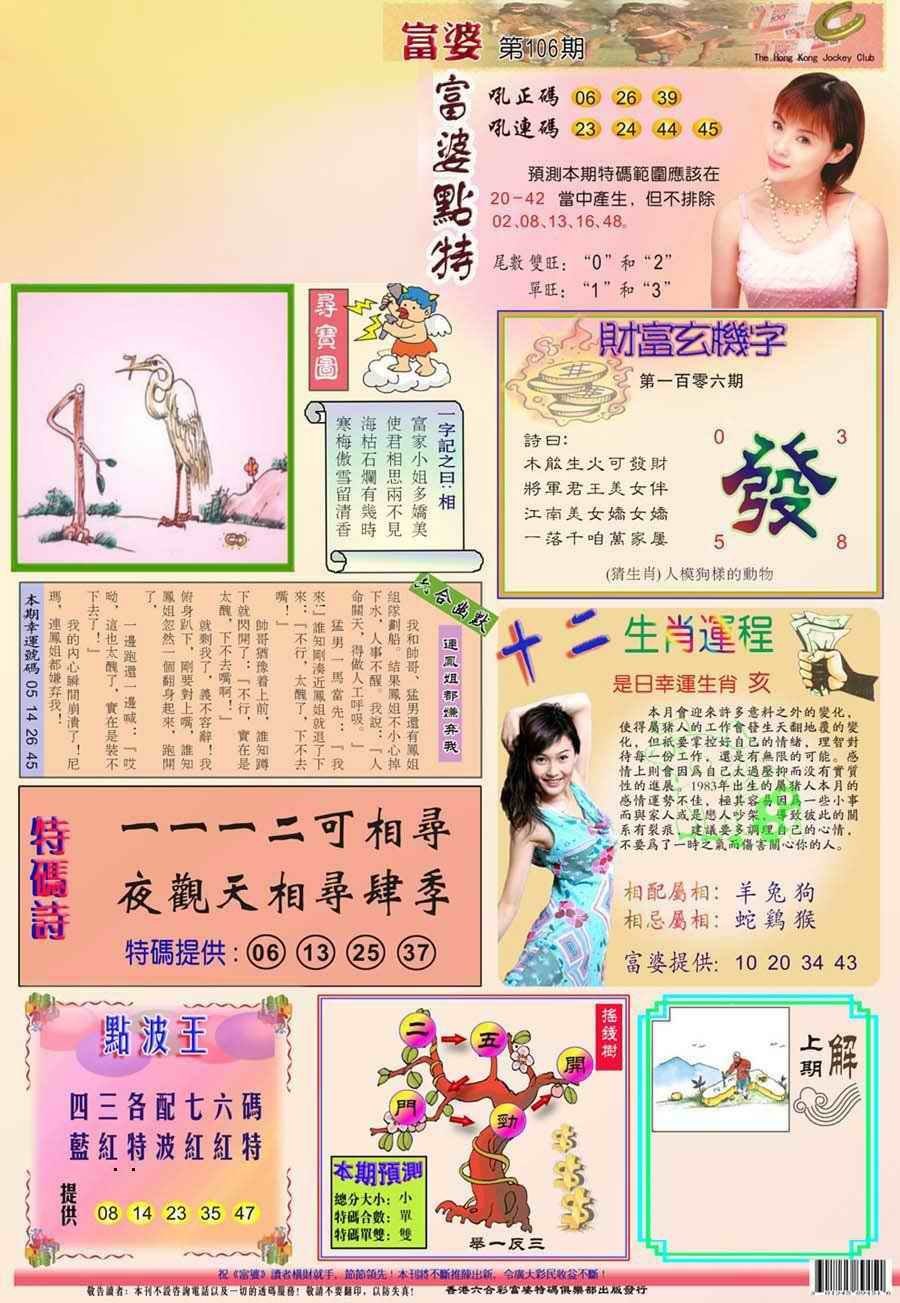 富婆 第106期
The Hong Kong Jockey Club
富婆點特
吼正碼 06 26 39
吼連碼 23 24 44 45
預測本期特碼範圍應該在
20-42 當中產生，但不排除
02、08、13、16、48。
尾數雙旺："0"和"2"
單旺："1"和"3"
尋寶圖
一字記之曰：相
富家小姐多嬌美
使君相思兩不見
海枯石爛有幾時
寒梅傲雪留清香
財富玄機字
第一百零六期
詩曰：
木能生火可發財
將軍君王美女伴
江南美女嬌女嬌
一落千咱萬家屢
0 3
發
5 8
(猜生肖)人模狗樣的動物
六合幽默
連鳳姐都嫌弃我
我和帥哥、猛男還有鳳姐
組隊劃船。結果鳳姐不小心掉
下水，人事不醒。我說："人
命關天，得做人工呼吸。"
猛男一馬當先："我
來！"誰知剛湊近鳳姐就退了下
來："不行，太醜了，下不去
嘴！"
帥哥猶豫着上前，誰知蹲
下就閃開了："不行，實在是
太醜，下不去嘴啊！"
就剩我了，義不容辭！我
俯身趴下，剛要對上嘴，誰知
鳳姐忽然一個翻身起來，跑開
了，
一邊跑還一邊喊："哎
呦，這也太醜了，實在是裝不
下去了！"
我的內心瞬間崩潰了！尼
瑪，連鳳姐都嫌弃我！
本期幸運號碼 05 14 26 45
十二生肖運程
是日幸運生肖 亥
本月會迎來許多意料之外的變化，
使得屬猪人的工作會發生天翻地覆的變
化，但衹要掌控好自己的情緒，理智對
待每一份工作，還是有無限的可能。感
情上則會因爲自己太過壓抑而没有實質
性的進展。1983年出生的屬猪人本月的
感情運勢不佳，極其容易因爲一些小事
而與家人或是戀人吵架，導致彼此的關
系有裂痕，建議要多調理自己的心情，
不要爲了一時之氣而傷害關心你的人。
相配屬相：羊 兔 狗
相忌屬相：蛇 鷄 猴
富婆提供：10 20 34 43
特碼詩
一一一二可相尋
夜觀天相尋肆季
特碼提供：06 13 25 37
點波王
四三各配七六碼
藍紅特波紅紅特
提供 08 14 23 35 47
搖錢樹
二 五 開
門 勁
本期預測
總分大小：小
特碼合數：單
特碼單雙：雙
舉一反三
上期解
祝《富婆》讀者橫財就手，節節領先！本刊將不斷推陳出新，令廣大彩民收益不斷！
敬告讀者：本刊不設咨詢電話以及一切的透碼服務！敬請不要翻印，以防失真！ 香港六合彩富婆特碼俱樂部出版發行